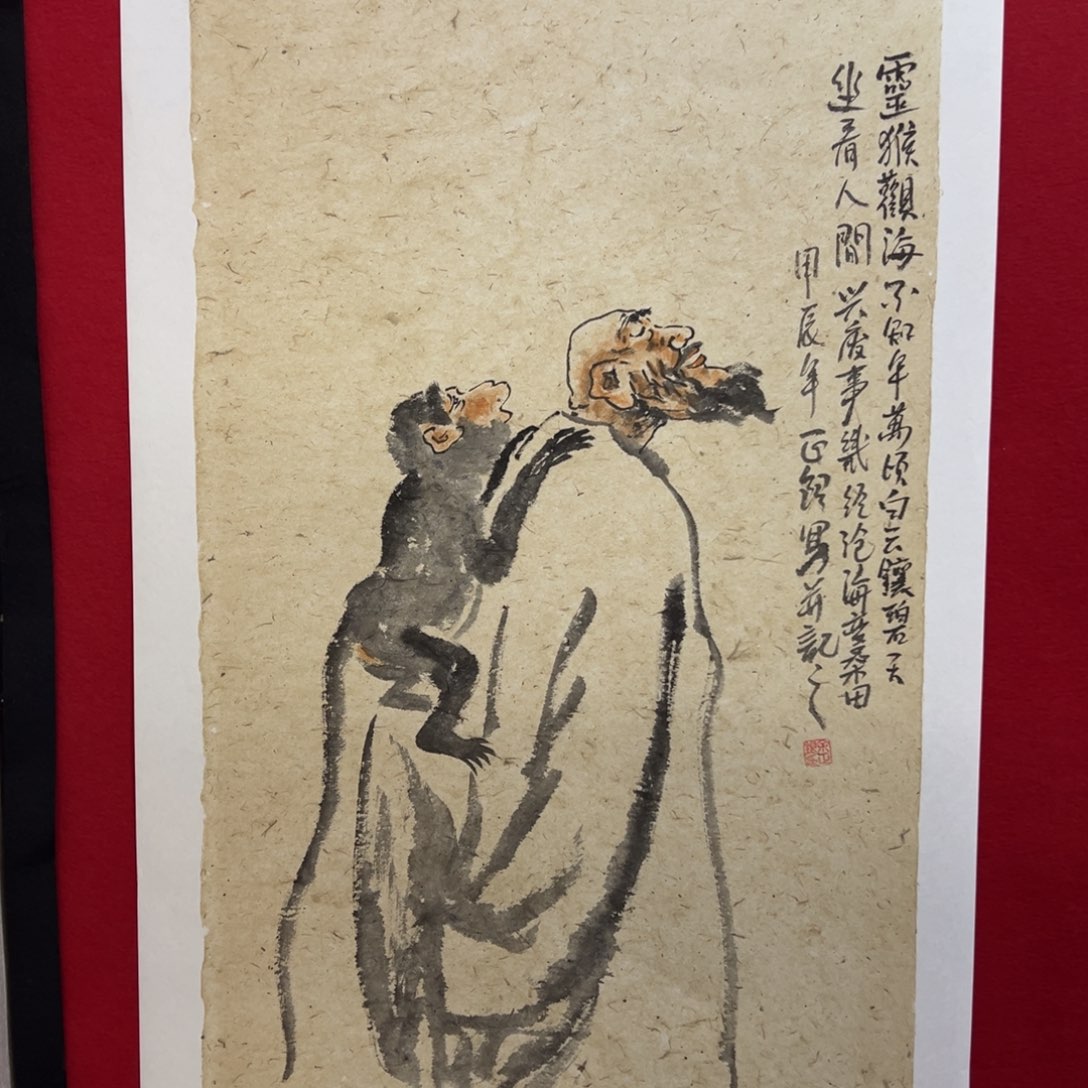 靈猴觀海不知年萬頃白云鑲碧天
坐看人間兴废事幾經沧海变桑田
甲辰年正銀写并記之